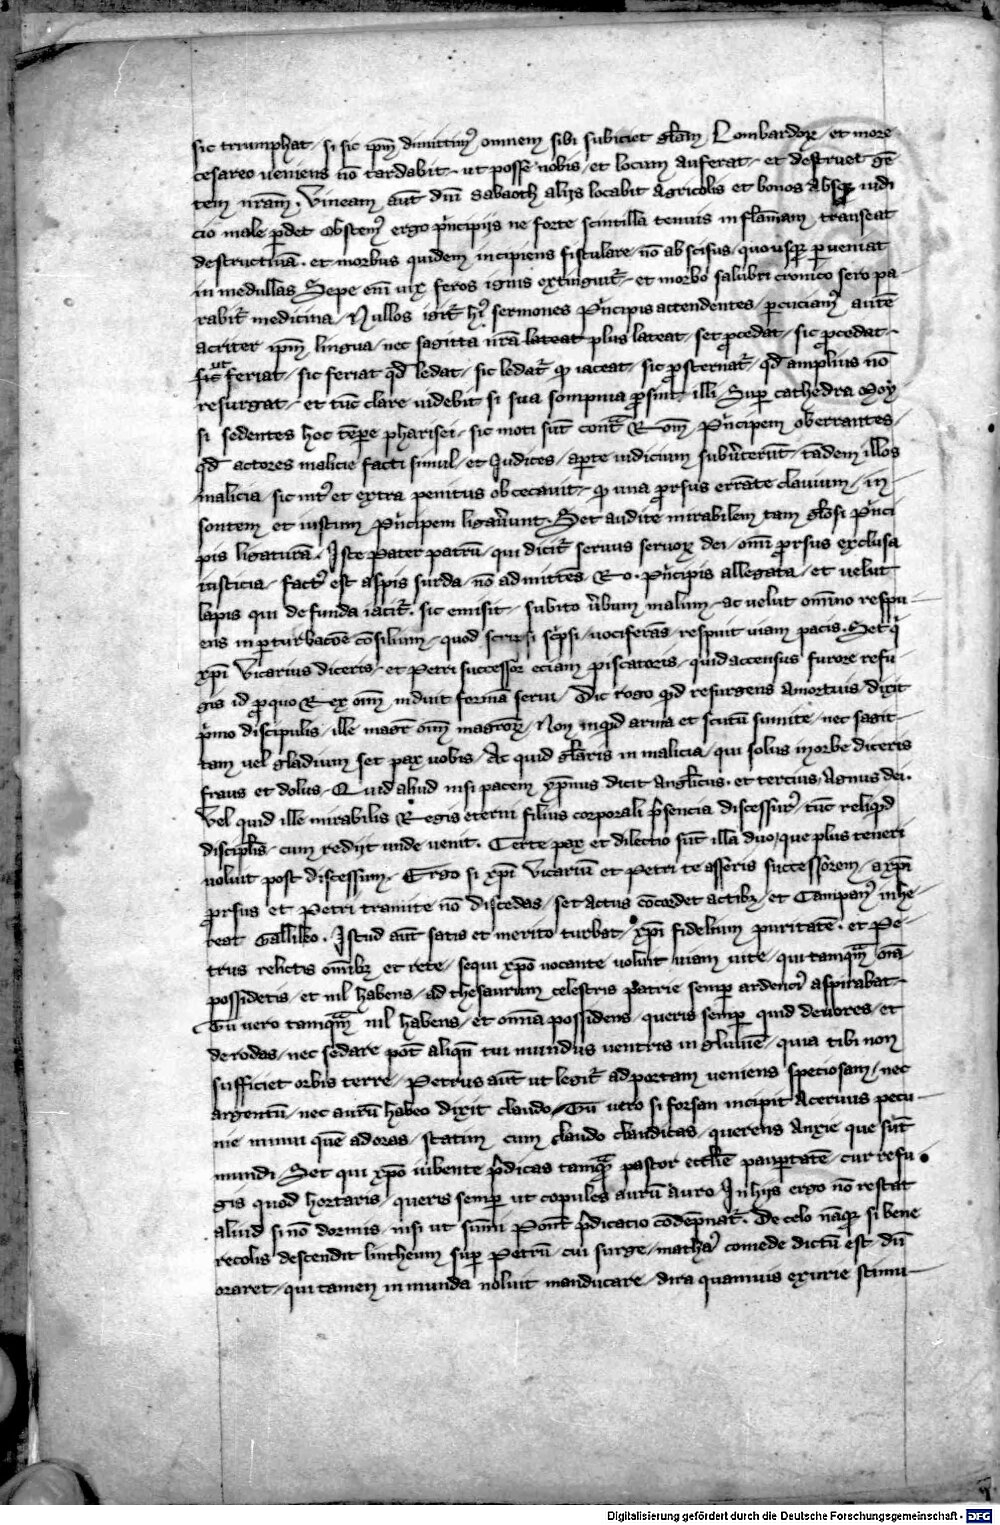 sic triumphat / si sic ipm̄ dimittimꝰ omnem sibi subiciet gl̄am Lombardoꝝ / et more
cesareo ueniens nō tardabit / ut posse nobis / et locum auferat / et destruet gē
tem nr̄am . Vineam aut̄ dn̄i sabaoth alijs locabit Agricolis et bonos absqꝫ iudi
cio male ꝑdet obstemꝰ ergo p̄ncipijs ne forte scintilla tenuis in flāmam transeat
destructiuā . et morbus quidem incipiens fistulare / nō abscisus / quousqꝫ ꝑueniat
in medullas Sepe em̄ uix feros ignis extinguit᷑ / et morbo salubri cronico sero pa-
rabit᷑ medicina / Nullos igit᷑ hꝰ sermones p̄ncipis attendentes / ꝑcuciamꝰ autē
acriter ipm̄ lingua / nec sagitta nr̄a lateat plus lateat / set ꝓcedat / sic ꝓcedat
sic ut feriat / sic feriat qd̄ ledat / sic ledat᷑ ꝙ iaceat / sic ꝓsternat᷑ / qd̄ amplius nō
resurgat / et tūc clare uidebit si sua sompnia ꝓsint illi / Suꝑ cathedra Moy
si sedentes hoc tēpe pharisei / sic moti sūt cont̄ Rom p̄ncipem oberrantes /
qd̄ actores malicie facti simul / et Judices / aꝑte iudicium subūterūt / tādem illos
malicia / sic intꝰ et extra penitus obcecauit / ꝙ una ꝓrsus errāte clauium / in
sontem et iustum p̄ncipem ligauēunt . Set audite mirabilem tam gl̄osi p̄nci
pis ligaturā . Iste pater patrū / qui dicit᷑ seruus seruoꝝ dei / om̄i ꝓrsus exclusa
iusticia / factꝰ est aspis surda / nō admittēs Ro . p̄ncipis allegata / et uelut
lapis qui de funda iacit᷑ . sic emisit / subito ūbum malum / ac uelut om̄ino respu
ens in ꝑturbacōe cōsilium / quod scripsi scp̄si / uociferās / respuit uiam pacis . Set q̄
xp̄i Vicarius diceris / et Petri successor eciam piscatoris / quid accensus furore refu
gis id ꝓ quo Rex om̄ induit formā serui / Dic rogo qd resurgens a mortuis / dixit
p̄mo discipulis / ille magr̄ om̄ magr̄oꝝ / Non inqd arma et scutū sumite / nec sagit
tam uel gladium set pax uobis / At quid gl̄aris in malicia / qui solus in orbe diceris
fraus et dolus / Quid aliud nisi pacem xp̄nus dicit Anglicus . et tercius / Agnus dei .
Vel quid ille mirabilis Regis eterni filius corporali p̄sencia discessurꝰ / tūc reliqd
discipl̄is / cum redijt unde uenit . Certe pax et dilectio sūt illa duo / que plus teneri
uoluit post discessum / Ergo si xp̄i Vicariū et Petri te asseris successorem / a xp̄i
ꝓrsus et Petri tramite nō discedas / set actus cōcordet actibꝫ / et Campanꝰ inhe
reat Gallileo . Istud aut̄ satis et merito turbat / xp̄i fidelium puritatē . et Pe
trus relictis om̄ibꝫ et rete / sequi xp̄o uocante uoluit uiam uite / qui tamqᷓm om̄ia
possidetis / et nil habens / ad thesaurum celestris patrie semꝑ ardencꝰ aspirabat
Tu uero tamqᷓm nil habens / et om̄ia possidens / queris semꝑ quid deuores / et
derodas / nec sedare pōt aliqn̄ tui mundus uentris ingluuiē / quia tibi non
sufficiet orbis terre / Petrus aut̄ ut legit᷑ ad portam ueniens speciosam / nec
argentū / nec aurū habeo dixit claudo / Tu uero si forsan incipit Aceruus pecu-
nie minui quē adoras / statim cum claudo claudicas / querens Anxie que sūt
mundi / Set qui xp̄o iubente p̄dicas tamqᷓ pastor eccl̄ie pauꝑtatē / cur refu
gis quod hortaris / queris semꝑ ut copules aurū auro / In hijs ergo nō restat
aliud si nō dormis / nisi ut sūmi Pont̄ p̄dicatio cōdempnat᷑ . De celo nāqꝫ si bene
recolis descendit lintheum suꝑ Petrū / cui surge / mathaꝰ comede dictū est / dū
oraret / qui tamen inmunda noluit manducare / dira quamuis exurie stimu